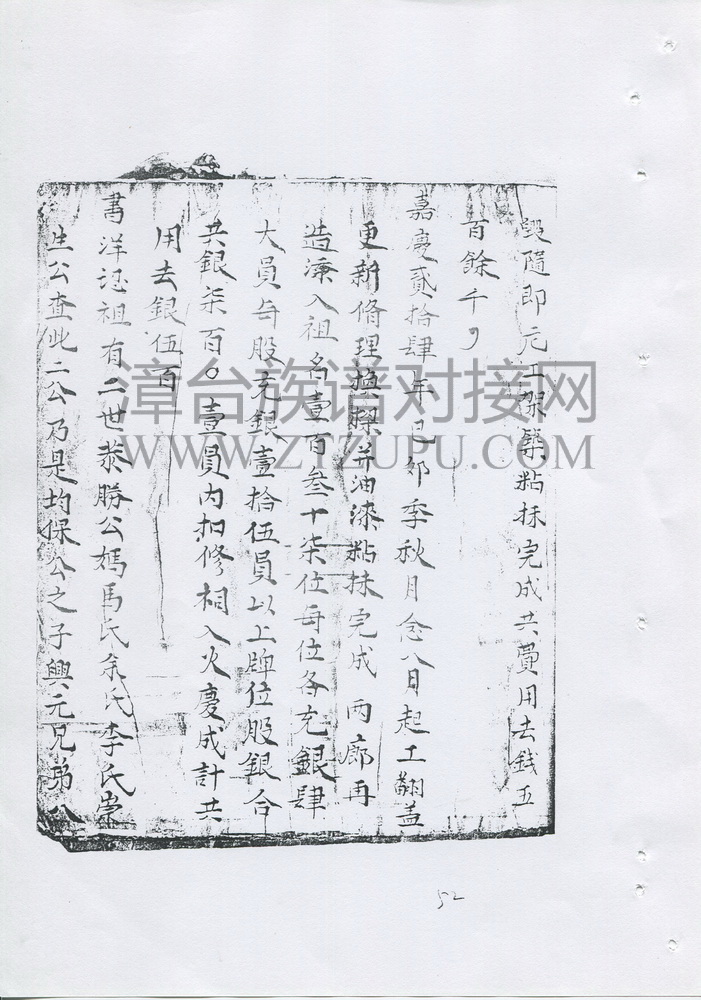 毀隨即元工架築粘抹完成共費用去錢五
百餘千
嘉慶貳拾肆年己卯季秋月念八日起工翻蓋
更新脩理換桷并油漆粘抹完成兩廊再
造漆入祖名壹百叁十柒位每位各充銀肆
大員每股充銀壹拾伍員以上牌位股銀合
共銀柒百〇壹員內扣修祠入火慶成計共
用去銀伍百
書洋祖有二世恭勝公媽馬氏余氏李氏崇
生公查此二公乃是均保公之子興元兄弟公
漳台族谱对接网
WWW.ZTZUPU.COM
52